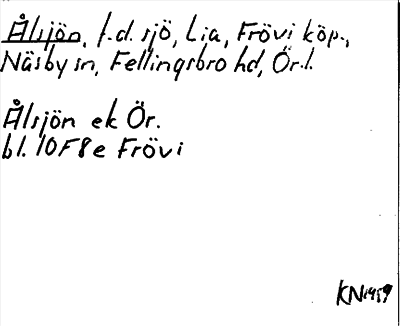 Ålsjön, f.d. sjö, Lia, Frövi köp.,
Näsby sn, Fellingsbro hd, Ör.l.
Ålsjön ek Ör.
bl. 10F8e Frövi
KN 1989